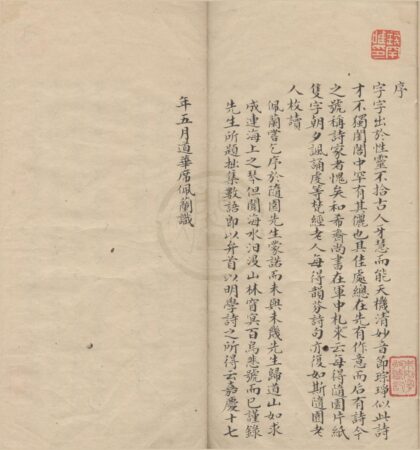 序
字字出於性靈不拾古人牙慧而能天機清妙音節琤瑽似此詩
才不獨閨閣中罕有其儷也其佳處總在先有作意而后有詩今
之號稱詩家者愧矣和希齋尚書在軍中札來云每得隨園片紙
隻字朝夕諷誦虔等梵經老人每得韻芬詩句亦復如斯隨園老
人枚讀
佩蘭嘗乞序於隨園先生蒙諾而未與未幾先生歸道山如求
成連海上之琴但聞海水汩沒山林窅冥百鳥悲號而已謹錄
先生所題拙集數語即以弁首以明學詩之所得云嘉慶十七
年五月道華席佩蘭識